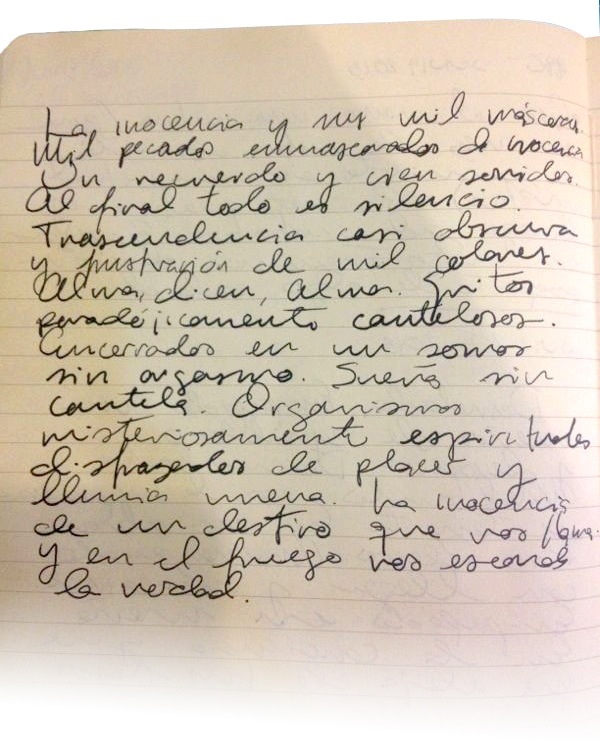 La inocencia y sus mil máscaras.
Mil pecados enmascarados de inocencia
Un recuerdo y cien sonidos.
Al final todo es silencio.
Trascendencia casi obscura
y frustración de mil colores.
Alma, dicen, alma. Gritos
paradójicamente cautelosos.
Encerrados en un somos
sin orgasmo. Sueño sin
cautela. Organismos
misteriosamente espirituales
disfrazados de placer y
lluvia nueva. La inocencia
de un destino que nos llama.
y en el fuego nos esconde
la verdad.